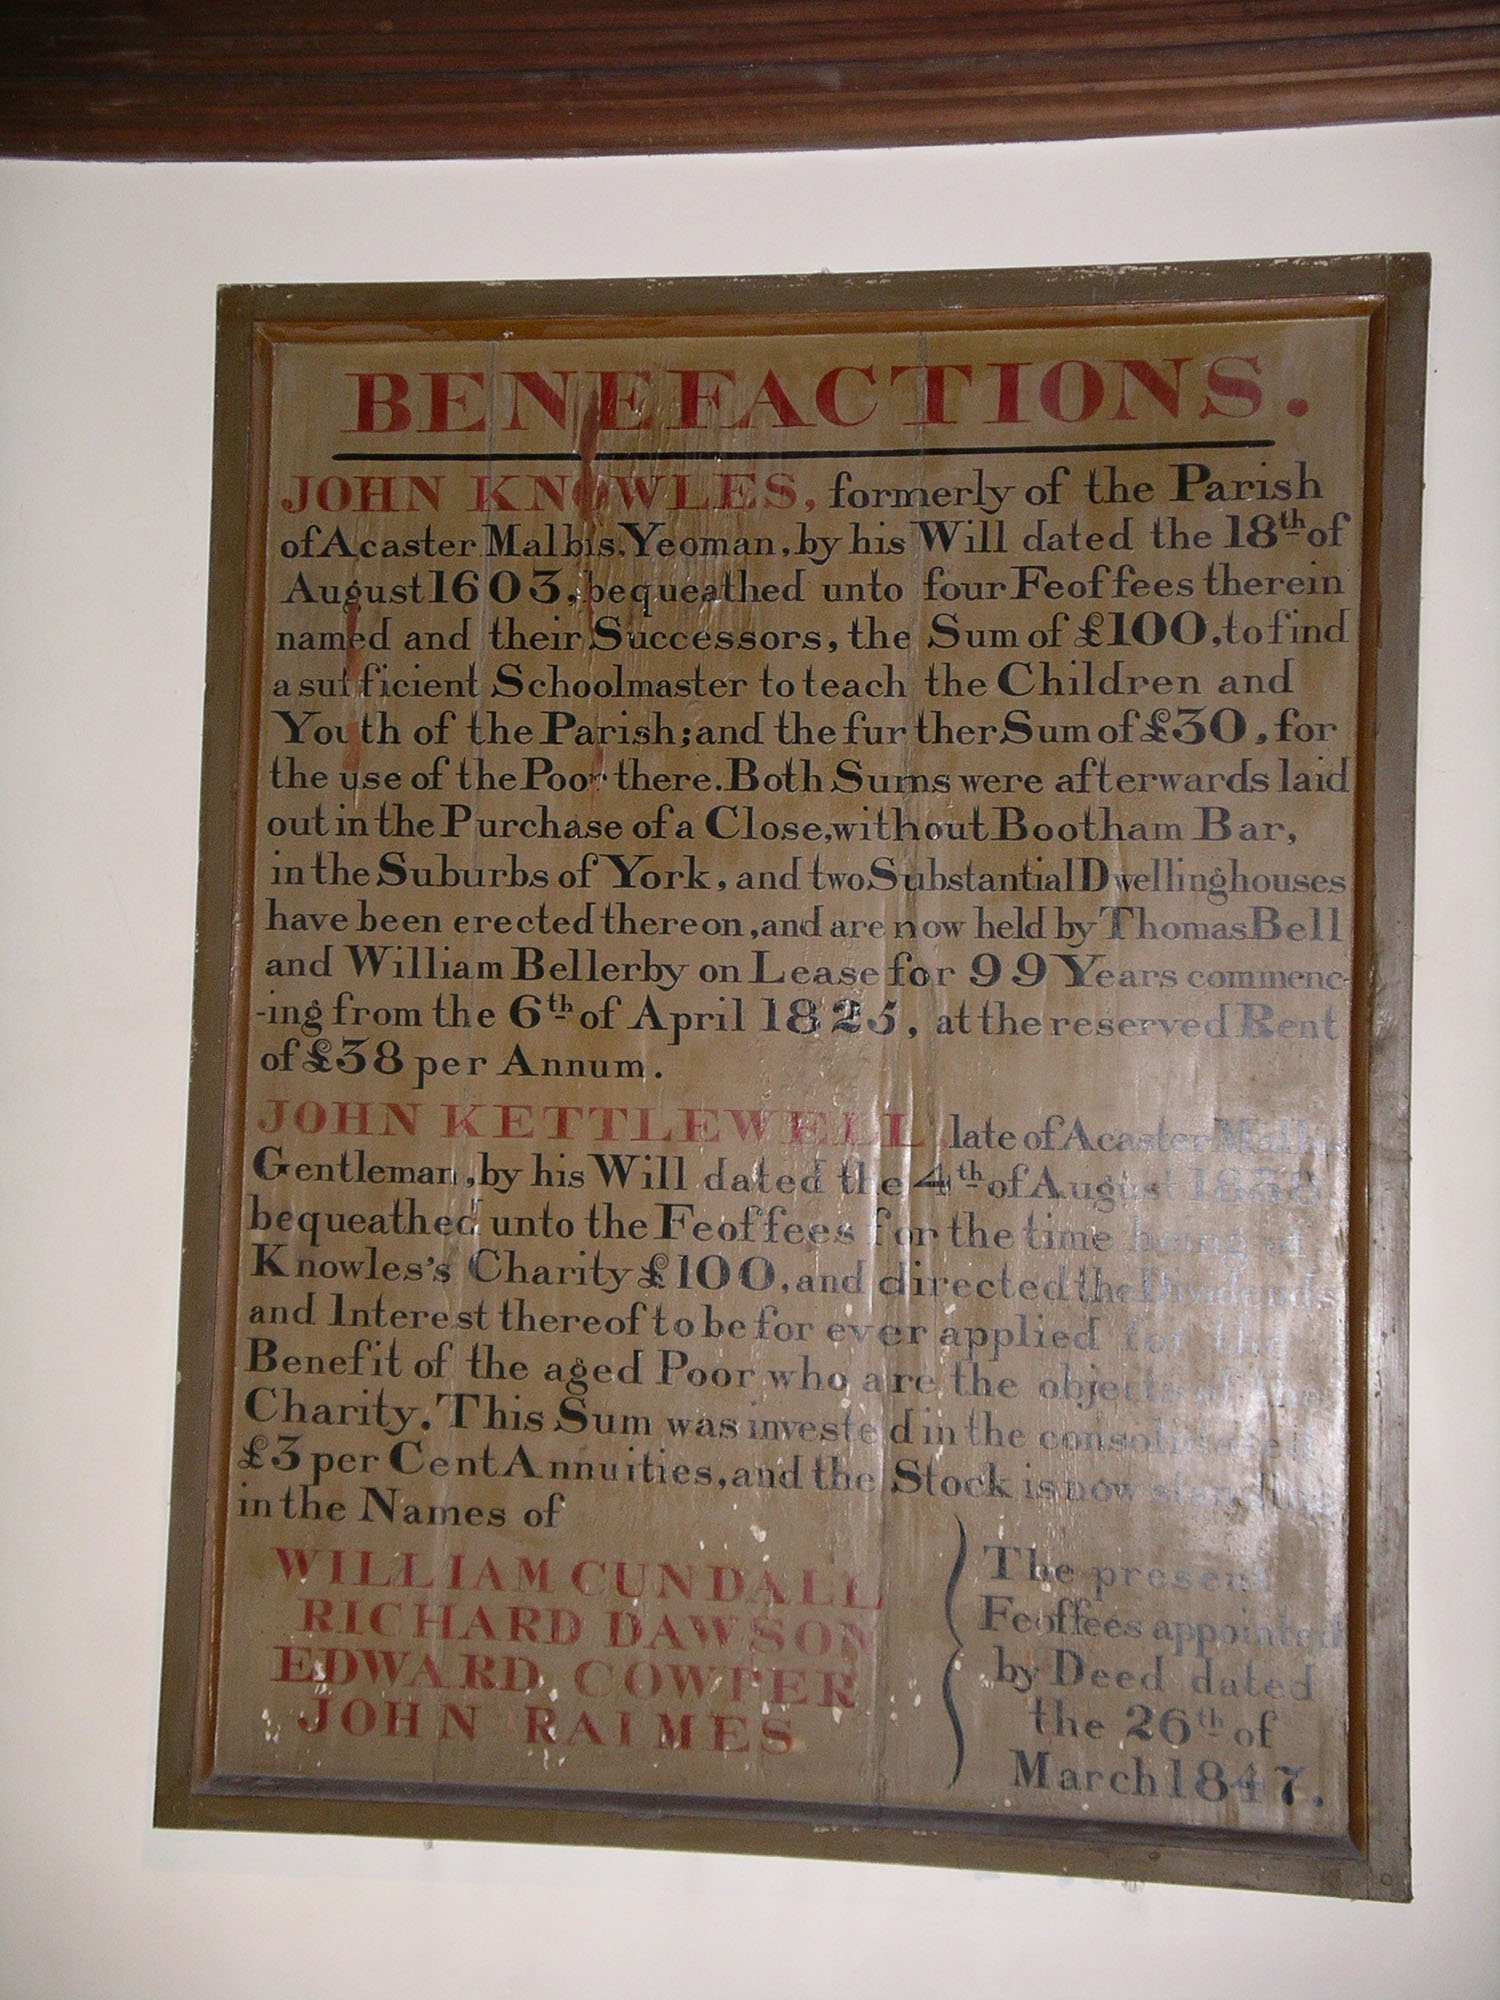 BENEFACTIONS.
JOHN KNOWLES, formerly of the Parish
of Acaster Malbis, Yeoman, by his Will dated the 18th of
August 1603, bequeathed unto four Feoffees therein
named and their Successors, the Sum of £100, to find
a sufficient Schoolmaster to teach the Children and
Youth of the Parish; and the further Sum of £30, for
the use of the Poor there. Both Sums were afterwards laid
out in the Purchase of a Close, without Bootham Bar,
in the Suburbs of York, and two Substantial Dwellinghouses
have been erected thereon, and are now held by Thomas Bell
and William Bellerby on Lease for 99 Years commenc-
-ing from the 6th of April 1825, at the reserved Rent
of £38 per Annum.
JOHN KETTLEWELL, late of Acaster Malbis
Gentleman, by his Will dated the 4th of August 1838
bequeathed unto the Feoffees for the time being of
Knowles's Charity £100, and directed the Dividends
and Interest thereof to be for ever applied for the
Benefit of the aged Poor who are the objects of the
Charity. This Sum was invested in the consolidated
£3 per Cent Annuities, and the Stock is now standing
in the Names of
WILLIAM CUNDALL
RICHARD DAWSON
EDWARD COWPER
JOHN RAIMES
The present
Feoffees appointed
by Deed dated
the 26th of
March 1847.